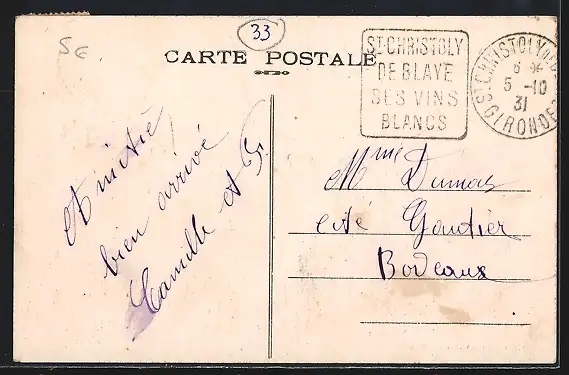 5€
33
CARTE POSTALE
ST CHRISTOLY
DE BLAYE
SES VINS
BLANCS
ST CHRISTOLY
6
5 -10
31
GIRONDE
Amitié
bien arrivé
Camille et
Mme Dumas
cité Gautier
Bordeaux